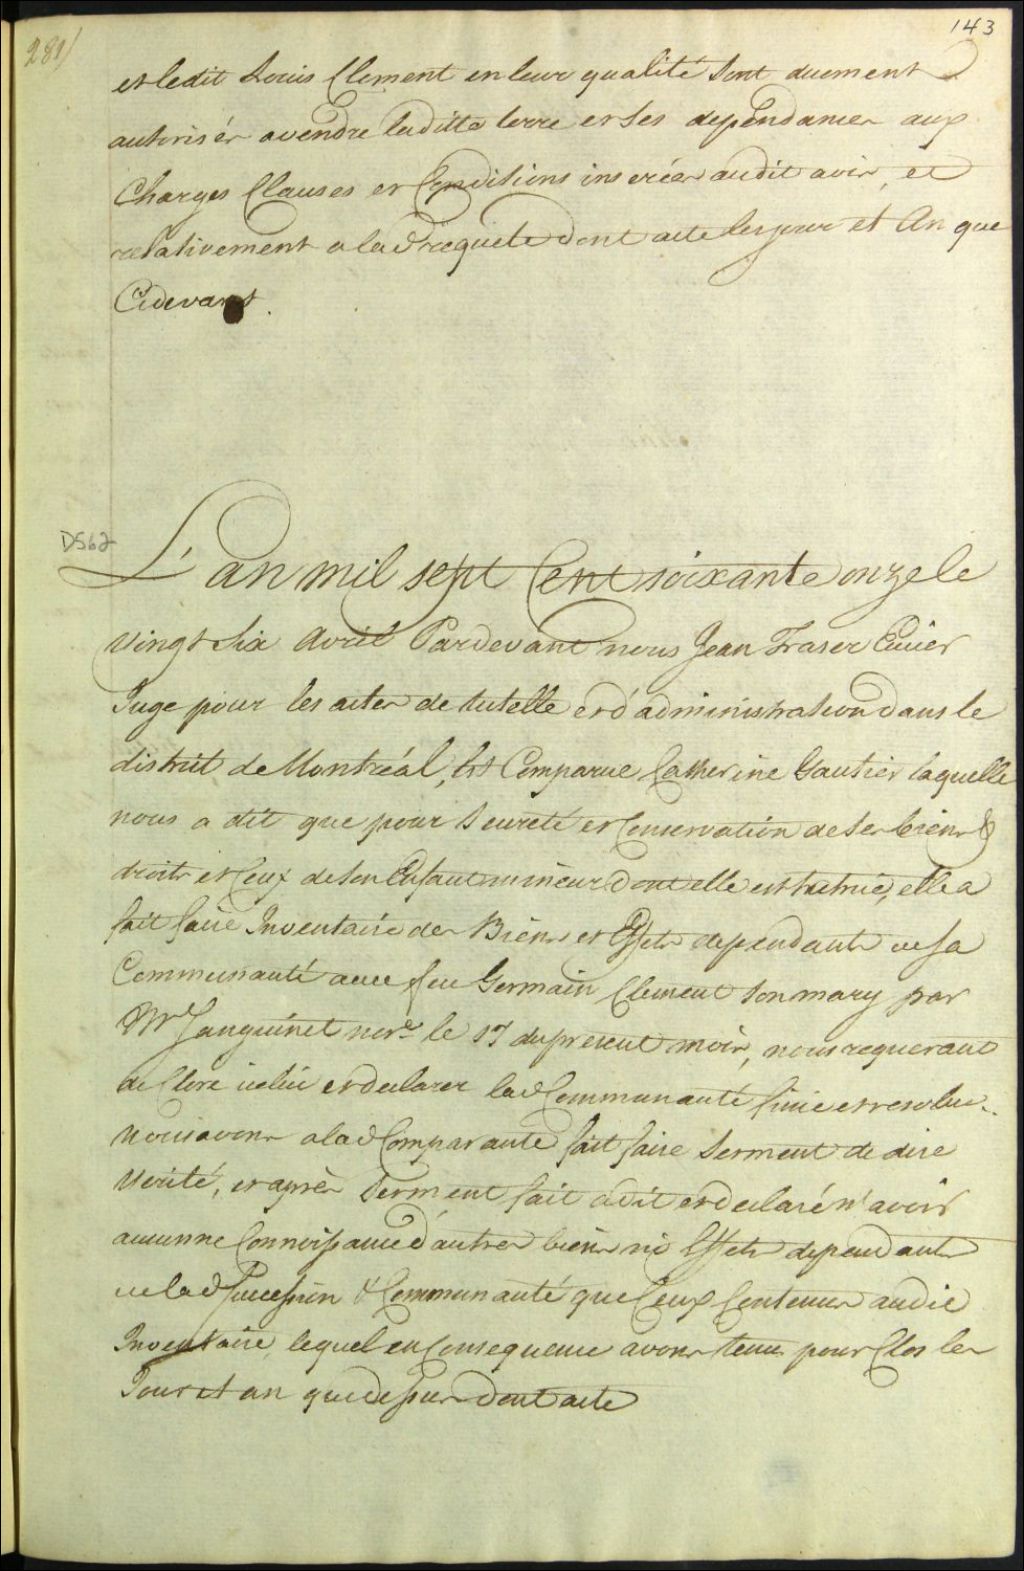 143
281/
et ledit Louis Clement en leur qualité sont duement
autorisés a vendre laditte terre et ses dependances aux
Charges Clauses et Conditions inserées audit avis, et
relativement a lad requete dont acte les jour et An que
Cidevant.
DS62
L'an mil sept Cent soixante onze le
vingt six avril Pardevant nous Jean Fraser Ecuier
Juge pour les actes de tutelle et d'administration dans le
district de Montréal, Est Comparue Catherine Gautier laquelle
nous a dit que pour seureté et Conservation de ses biens &
droits et Ceux de son Enfant mineur dont elle est tutrice, elle a
fait faire Inventaire des Biens et Effets dependants de sa
Communauté avec feu Germain Clement son mary par
Mr Sanguinet nore le 17 du present mois, nous requerant
de Clore icelui et declarer lad Communauté finie et resolue..
Nous avons a lad Comparante fait faire serment de dire
Verité, et après serment fait a dit et declaré n'avoir
aucunne Connoissance d'autres biens ni Effets dependants
de lad Succession & Communauté que Ceux Contenus audit
Inventaire, lequel en Consequence avons tenu pour Clos les
Jour et an que dessus dont acte